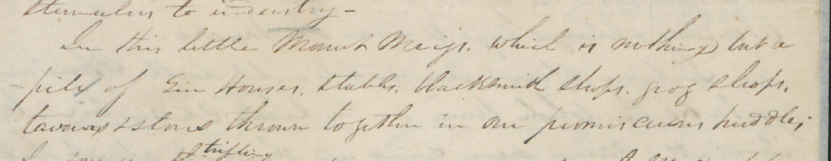 stimulus to industry -
In this little Mount Meigs. which is nothing but a
pile of Gin Houses. Stables. blacksmith shops. grog shops.
taverns & stores thrown together in one promiscuous huddle;
trifling